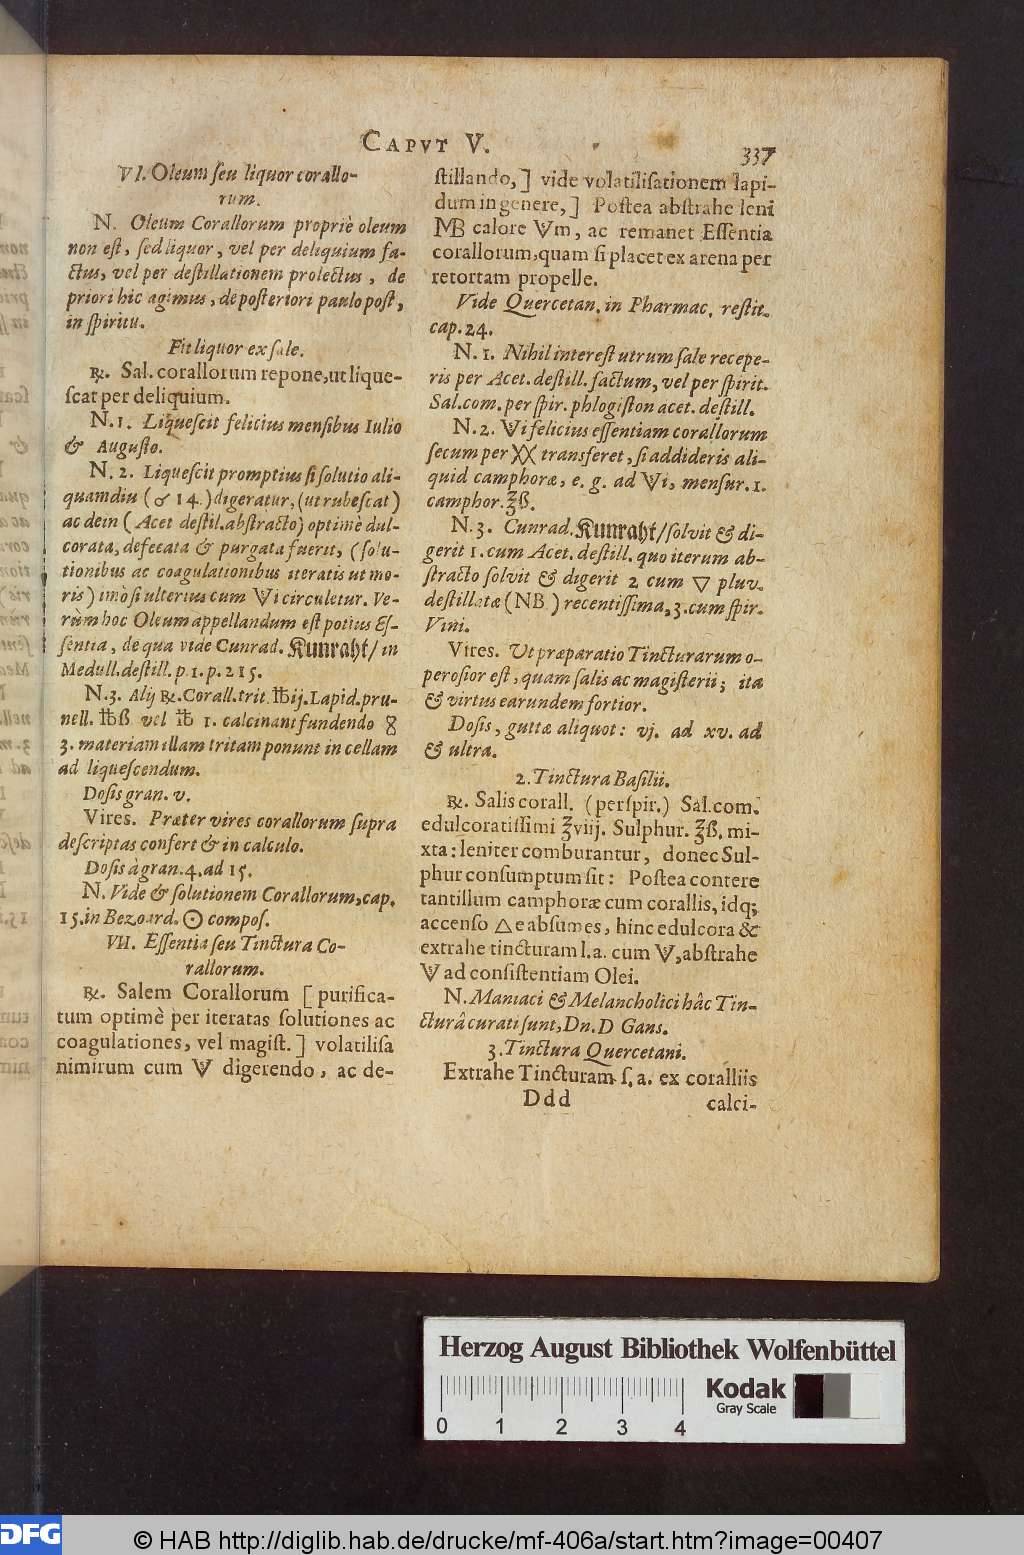 CAPVT V.
337
VI. Oleum ſeu liquor corallo-
rum.
N. Oleum Corallorum propriè oleum
non eſt, ſed liquor, vel per deliquium fa-
ctus, vel per deſtillationem prolectus, de
priori hic agimus, de poſteriori paulo poſt,
in ſpiritu.
Fit liquor ex ſale.
℞. Sal. corallorum repone, ut lique-
ſcat per deliquium.
N. 1. Liqueſcit felicius menſibus Iulio
& Auguſto.
N. 2. Liqueſcit promptius ſi ſolutio ali-
quamdiu ( 14.) digeratur, (ut rubeſcat)
ac dein (Acet deſtil. abſtracto) optimè dul-
corata, defecata & purgata fuerit, (ſolu-
tionibus ac coagulationibus iteratis ut mo-
ris) imò ſi ulterius cum V i circuletur. Ve-
rùm hoc Oleum appellandum eſt potius Eſ-
ſentia, de qua vide Cunrad. Kunraht/ in
Medull. deſtill. p. 1. p. 215.
N. 3. Alij ℞. Corall. trit. ℔ij. Lapid. pru-
nell. ℔ß vel ℔ 1. calcinant fundendo
3. materiam illam tritam ponunt in cellam
ad liqueſcendum.
Doſis gran. v.
Vires. Præter vires corallorum ſupra
deſcriptas confert & in calculo.
Doſis à gran. 4. ad 15.
N. Vide & ſolutionem Corallorum, cap.
15. in Bezoard. ☉ compoſ.
VII. Eſſentia ſeu Tinctura Co-
rallorum.
℞. Salem Corallorum [purifica-
tum optimè per iteratas ſolutiones ac
coagulationes, vel magiſt.] volatiliſa
nimirum cum V digerendo, ac de-
ſtillando,] vide volatiliſationem lapi-
dum in genere,] Poſtea abſtrahe leni
MB calore Vm, ac remanet Eſſentia
corallorum, quam ſi placet ex arena per
retortam propelle.
Vide Quercetan. in Pharmac. reſtit.
cap. 24.
N. 1. Nihil intereſt utrum ſale recepe-
ris per Acet. deſtill. factum, vel per ſpirit.
Sal. com. per ſpir. phlogiſton acet. deſtill.
N. 2. Vi felicius eſſentiam corallorum
ſecum per XX transferet, ſi addideris ali-
quid camphoræ, e. g. ad Vi, menſur. 1.
camphor. ℥ß.
N. 3. Cunrad. Kunraht/ ſolvit & di-
gerit 1. cum Acet. deſtill. quo iterum ab-
ſtracto ſolvit & digerit 2 cum ▽ pluv.
deſtillatæ (NB) recentiſſima, 3. cum ſpir.
Vini.
Vires. Ut præparatio Tincturarum o-
peroſior eſt, quam ſalis ac magiſterii; ita
& virtus earundem fortior.
Doſis, guttæ aliquot: vj. ad xv. ad
& ultra.
2. Tinctura Baſilii.
℞. Salis corall. (per ſpir.) Sal. com.
edulcoratiſſimi ℥viij. Sulphur. ℥ß. mi-
xta: leniter comburantur, donec Sul-
phur conſumptum ſit: Poſtea contere
tantillum camphoræ cum corallis, idq;
accenſo △ e abſumes, hinc edulcora &
extrahe tincturam l. a. cum V, abſtrahe
V ad conſiſtentiam Olei.
N. Maniaci & Melancholici hâc Tin-
cturâ curati ſunt, Dn. D Gans.
3. Tinctura Quercetani.
Extrahe Tincturam ſ. a. ex coralliis
Ddd
calci-
Herzog August Bibliothek Wolfenbüttel
Kodak
Gray Scale
0 1 2 3 4
DFG
© HAB http://diglib.hab.de/drucke/mf-406a/start.htm?image=00407